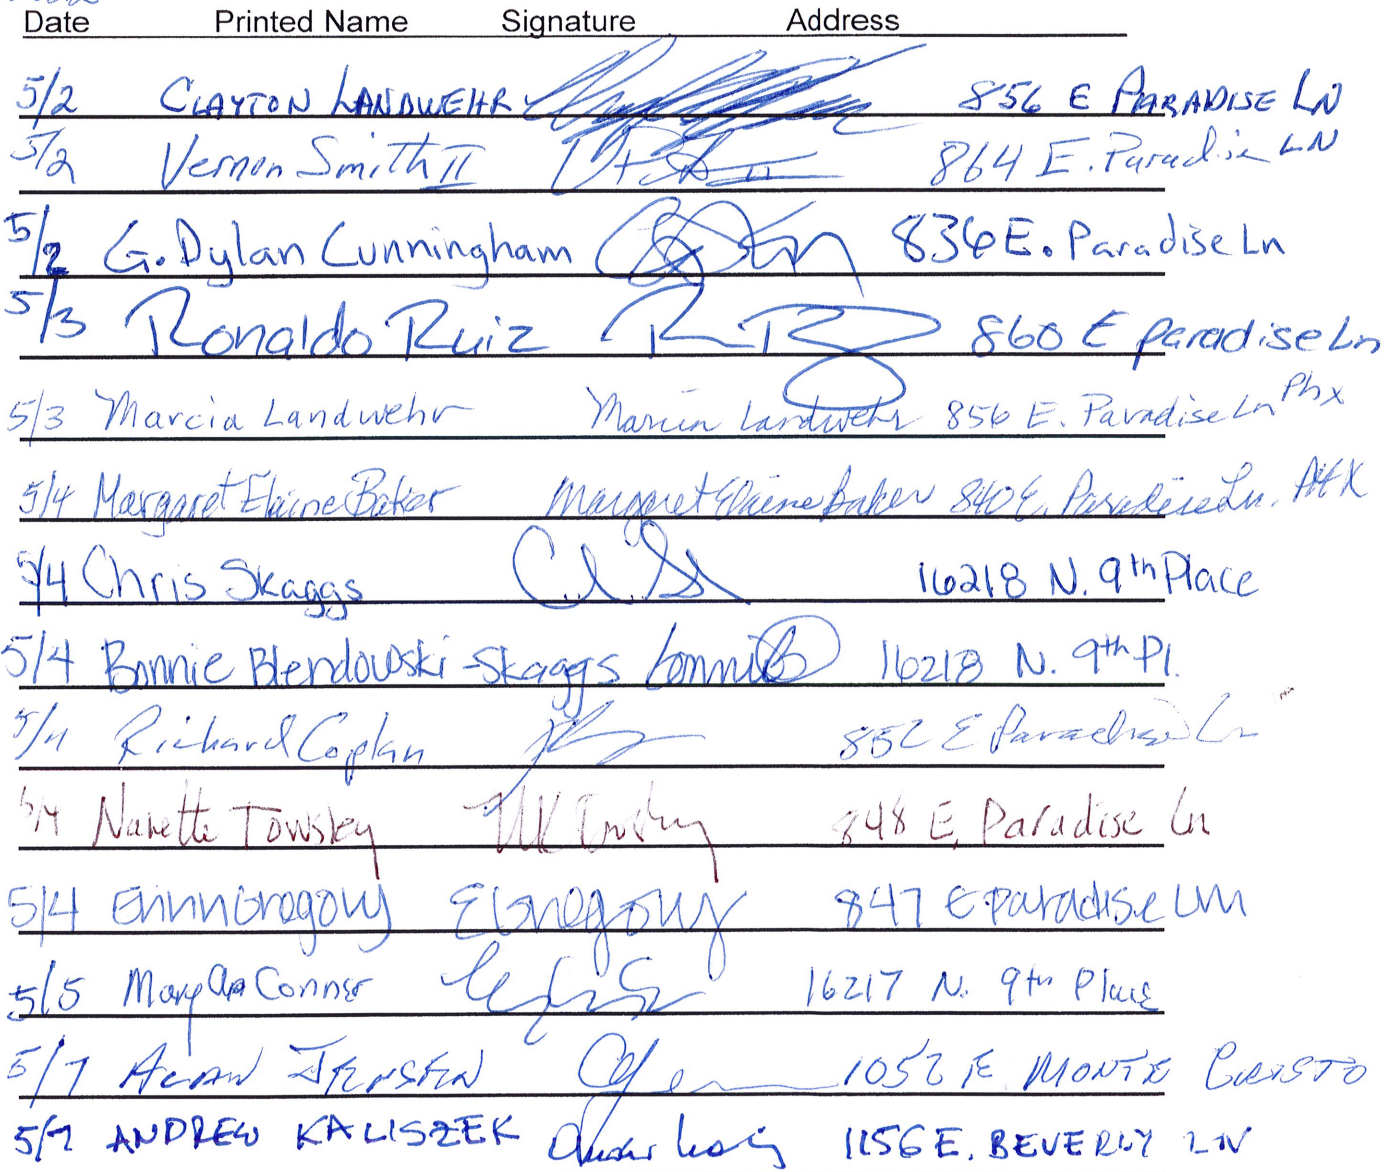 Date Printed Name Signature Address
5/2 CLAYTON LANDWEHR 856 E PARADISE LN
5/2 Vernon Smith II 864 E. Paradise LN
5/2 G. Dylan Cunningham 836 E. Paradise Ln
5/3 Ronaldo Ruiz 860 E paradise Ln
5/3 Marcia Landwehr Marcia Landwehr 856 E. Paradise Ln Phx
5/4 Margaret Elaine Baker Margaret Elaine Baker 840 E. Paradise Ln. PHX
5/4 Chris Skaggs 16218 N. 9th Place
5/4 Bonnie Blendowski-Skaggs 16218 N. 9th Pl.
5/4 Richard Coplan 852 E Paradise Ln
5/4 Nanette Towsley 848 E. Paradise Ln
5/4 Erinn Gregory E Gregory 847 E Paradise LN
5/5 Mary Connor 16217 N. 9th Place
5/7 ALAN JENSEN 1052 E MONTE CRISTO
5/7 ANDREW KALISZEK 1156 E. BEVERLY LN